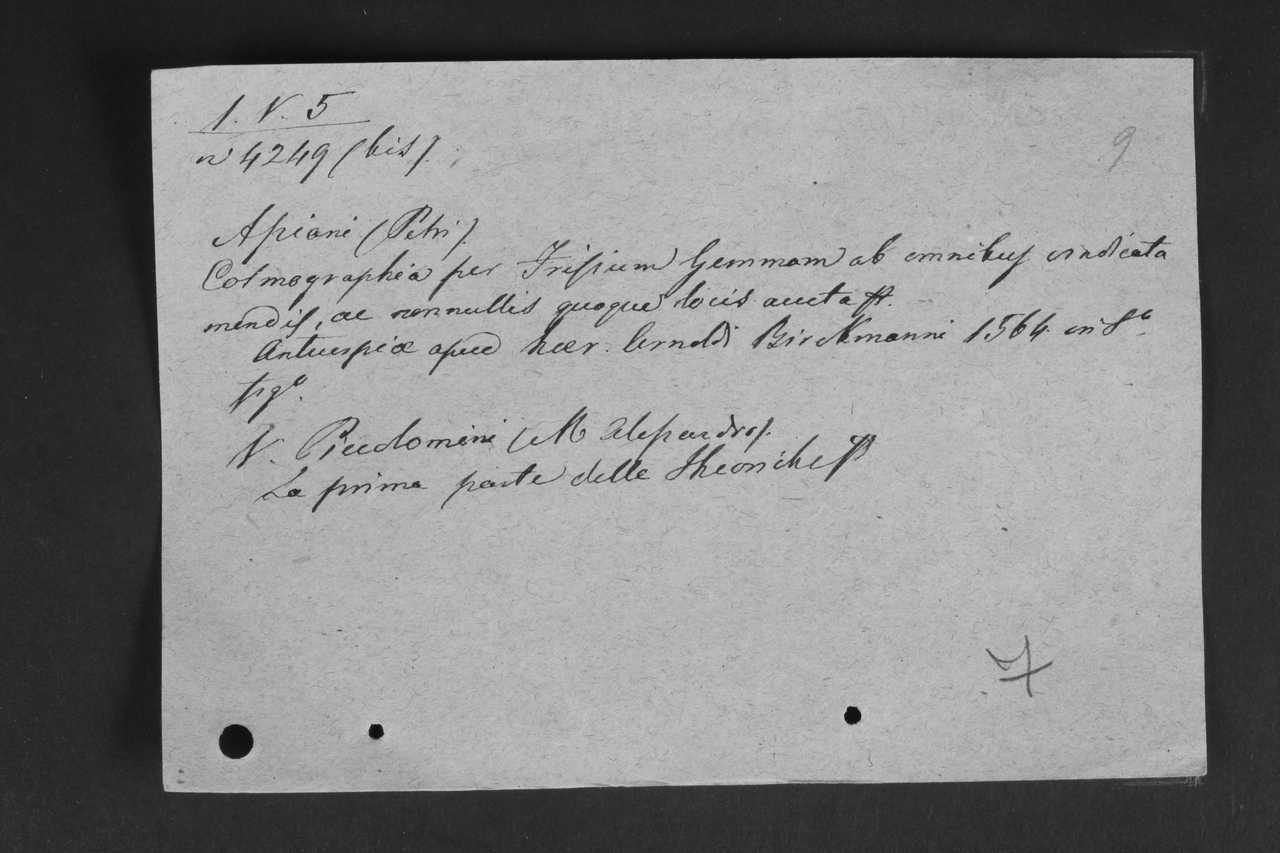 1. V. 5
nº 4249 (bis).
9
Apiani (Petri).
Cosmographia per Frisium Gemmam ab omnibus vindicata
mendis, ac nonnullis quoque locis aucta
Antuerpiæ apud hær. Arnoldi Birckmanni 1564 in 8º
figº.
V. Piccolomini (M Alessandro).
La prima parte delle Theoriche
7